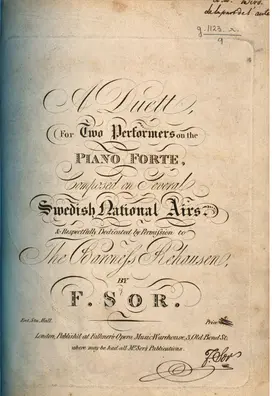 de la part de l'aute
g. 1123. x.
9
A Duett,
For Two Performers on the
PIANO FORTE,
Composed on Several
Swedish National Airs.
& Respectfully Dedicated by Permission to
The Baroness Rehausen,
BY
F. SOR.
Ent. Sta. Hall. Price
London, Publish'd at Falkner's Opera Music Warehouse, 3, Old Bond St.
where may be had all Mr. Sor's Publications.
F. Sor